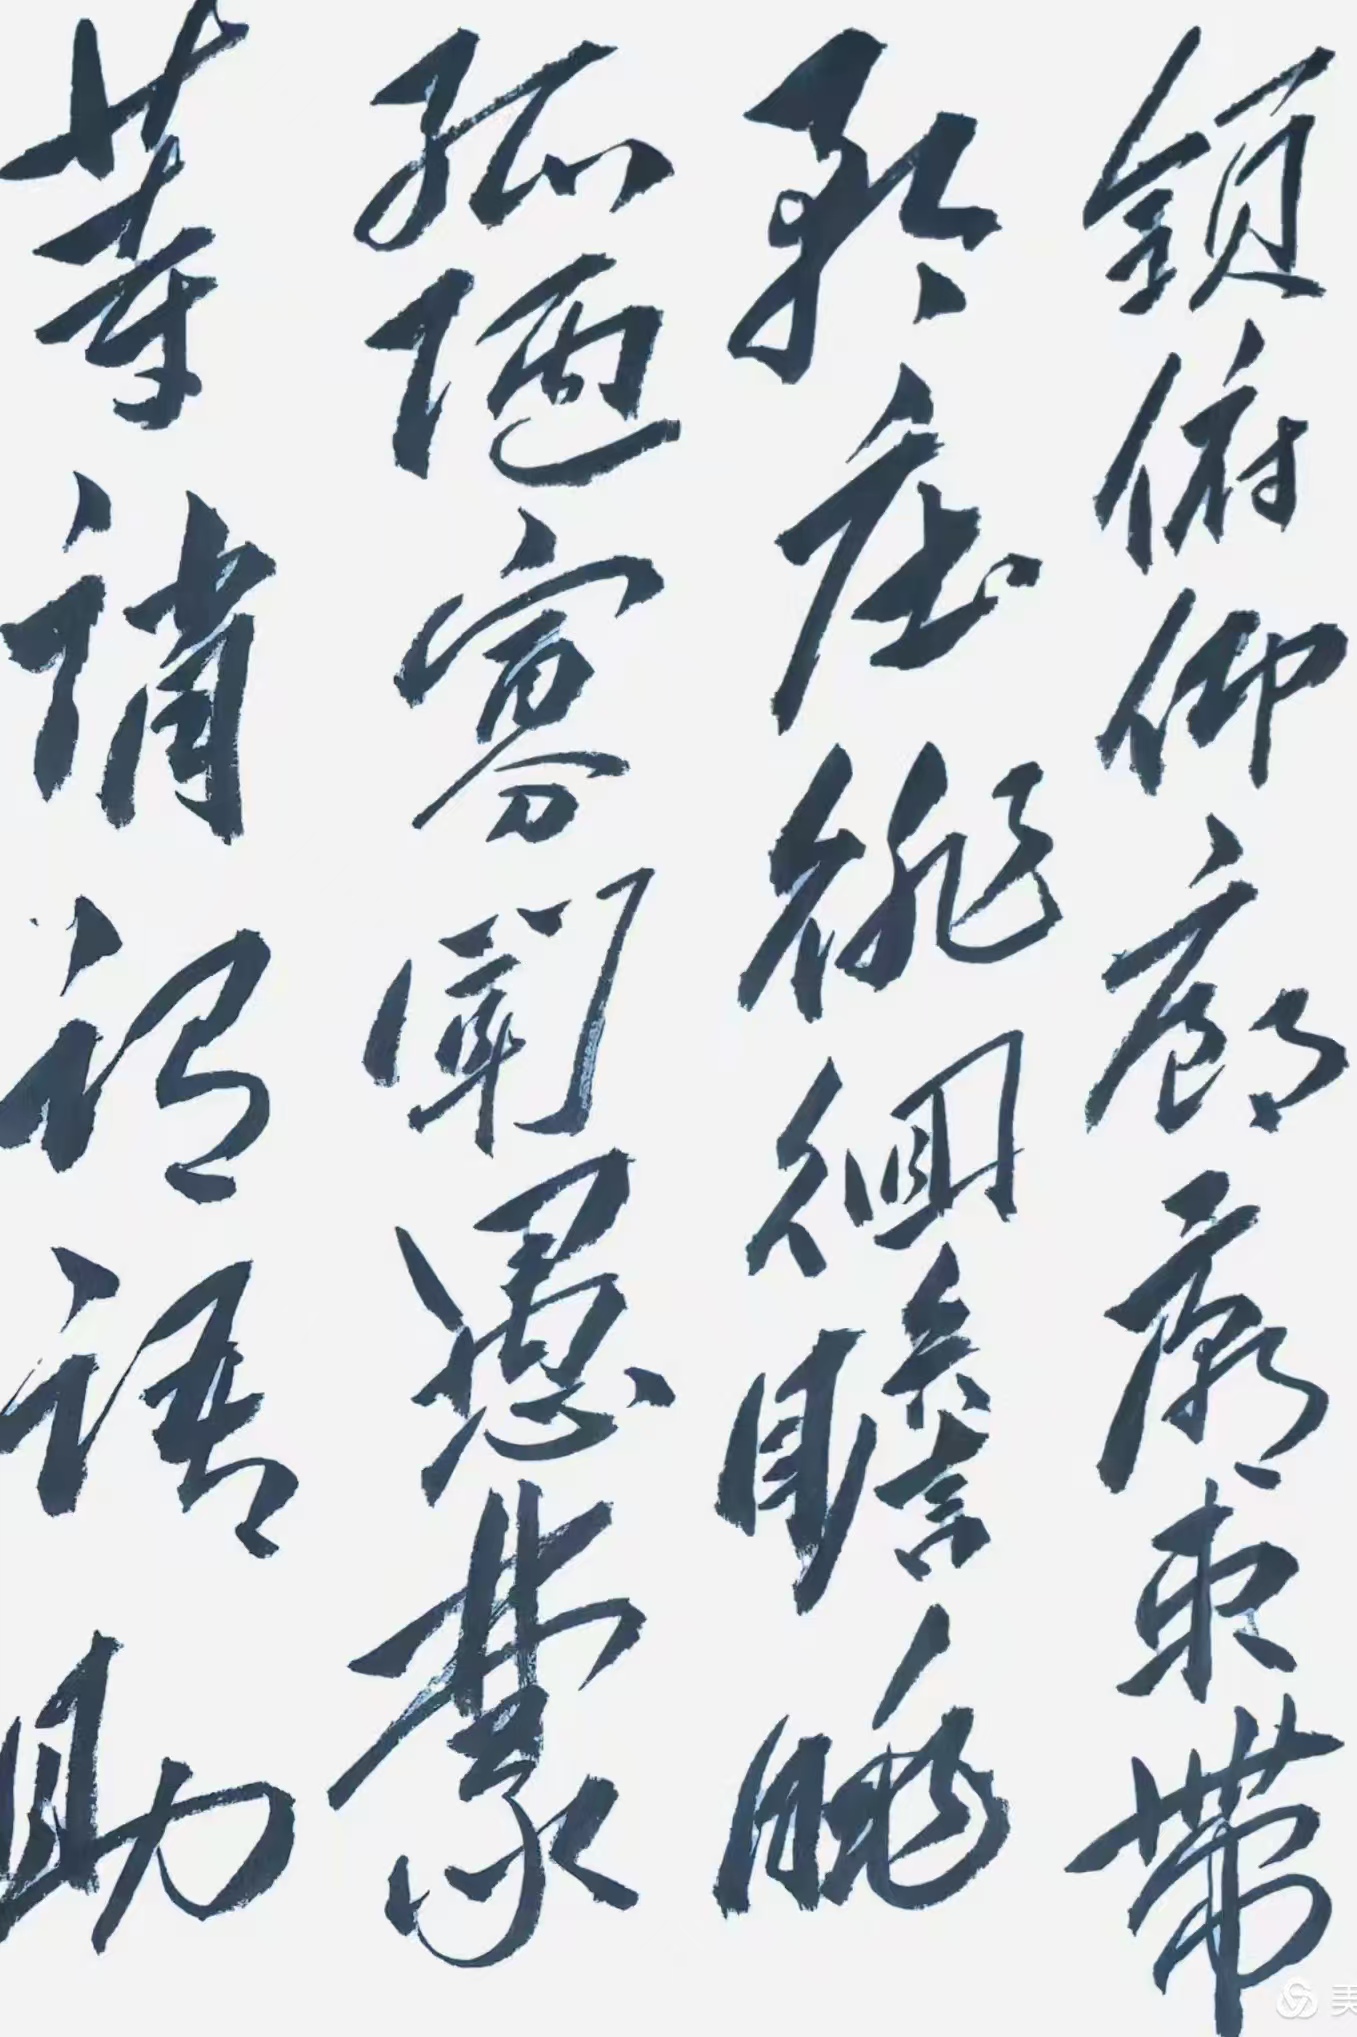 領俯仰廊廟束帶
矜莊徘徊瞻眺
孤陋寡聞愚蒙
等誚謂語助
美